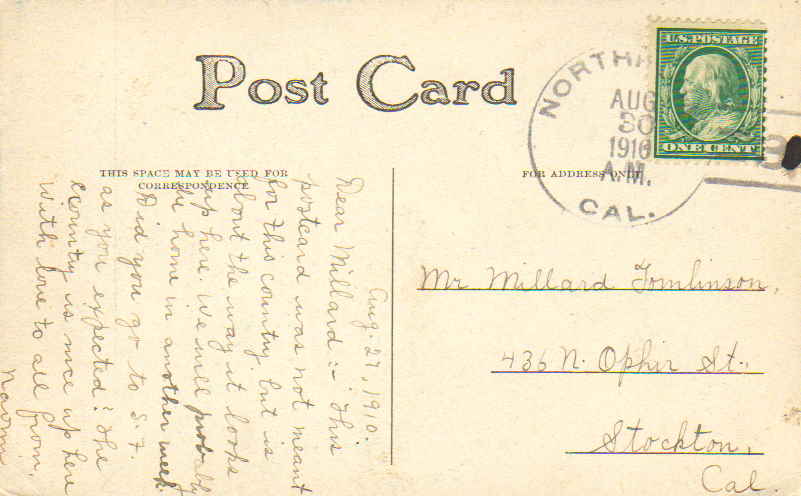 Post Card
THIS SPACE MAY BE USED FOR
CORRESPONDENCE
FOR ADDRESS ONLY
U.S.POSTAGE
ONE CENT
NORTH
AUG
30
1910
A.M.
CAL.
Aug. 27, 1910.
Dear Millard :- This
postcard was not meant
for this country but is
about the way it looks
up here. We will probably
be home in another week.
Did you go to S. F.
as you expected? The
country is nice up here
With love to all from,
Naomi
Mr Millard Tomlinson,
436 N. Ophir St.,
Stockton,
Cal.